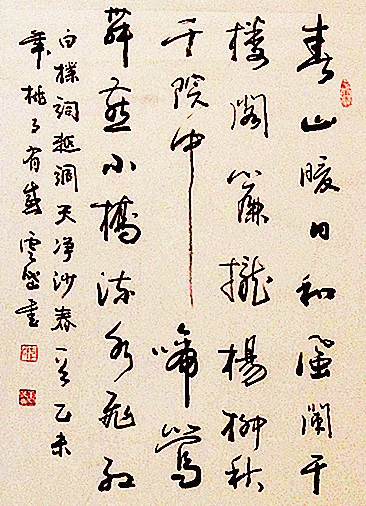 春山暖日和風闌干
樓閣簾攏楊柳秋
千院中啼鶯
舞燕小橋流水飛紅
白樸詞越調天净沙春一首乙未
年桃月有感雲書